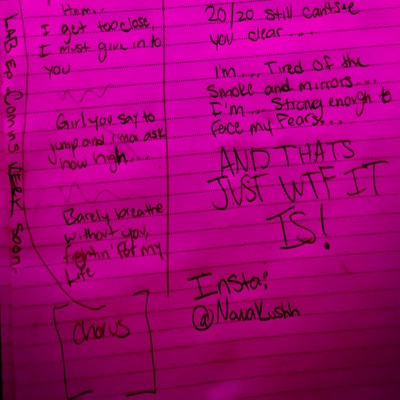 Here..
I get too close,
I must give in to
you
Girl you say to
jump and I'ma ask
how high....
Barely breathe
without you,
fightin' for my
life
Chorus
20/20 still cantsee
you clear....
I'm.... Tired of the
smoke and mirrors...
I'm... Strong enough to
face my fears...
AND THATS
JUST WTF IT
IS!
Insta:
@NanaKushh
LAB EP Coming Soon.